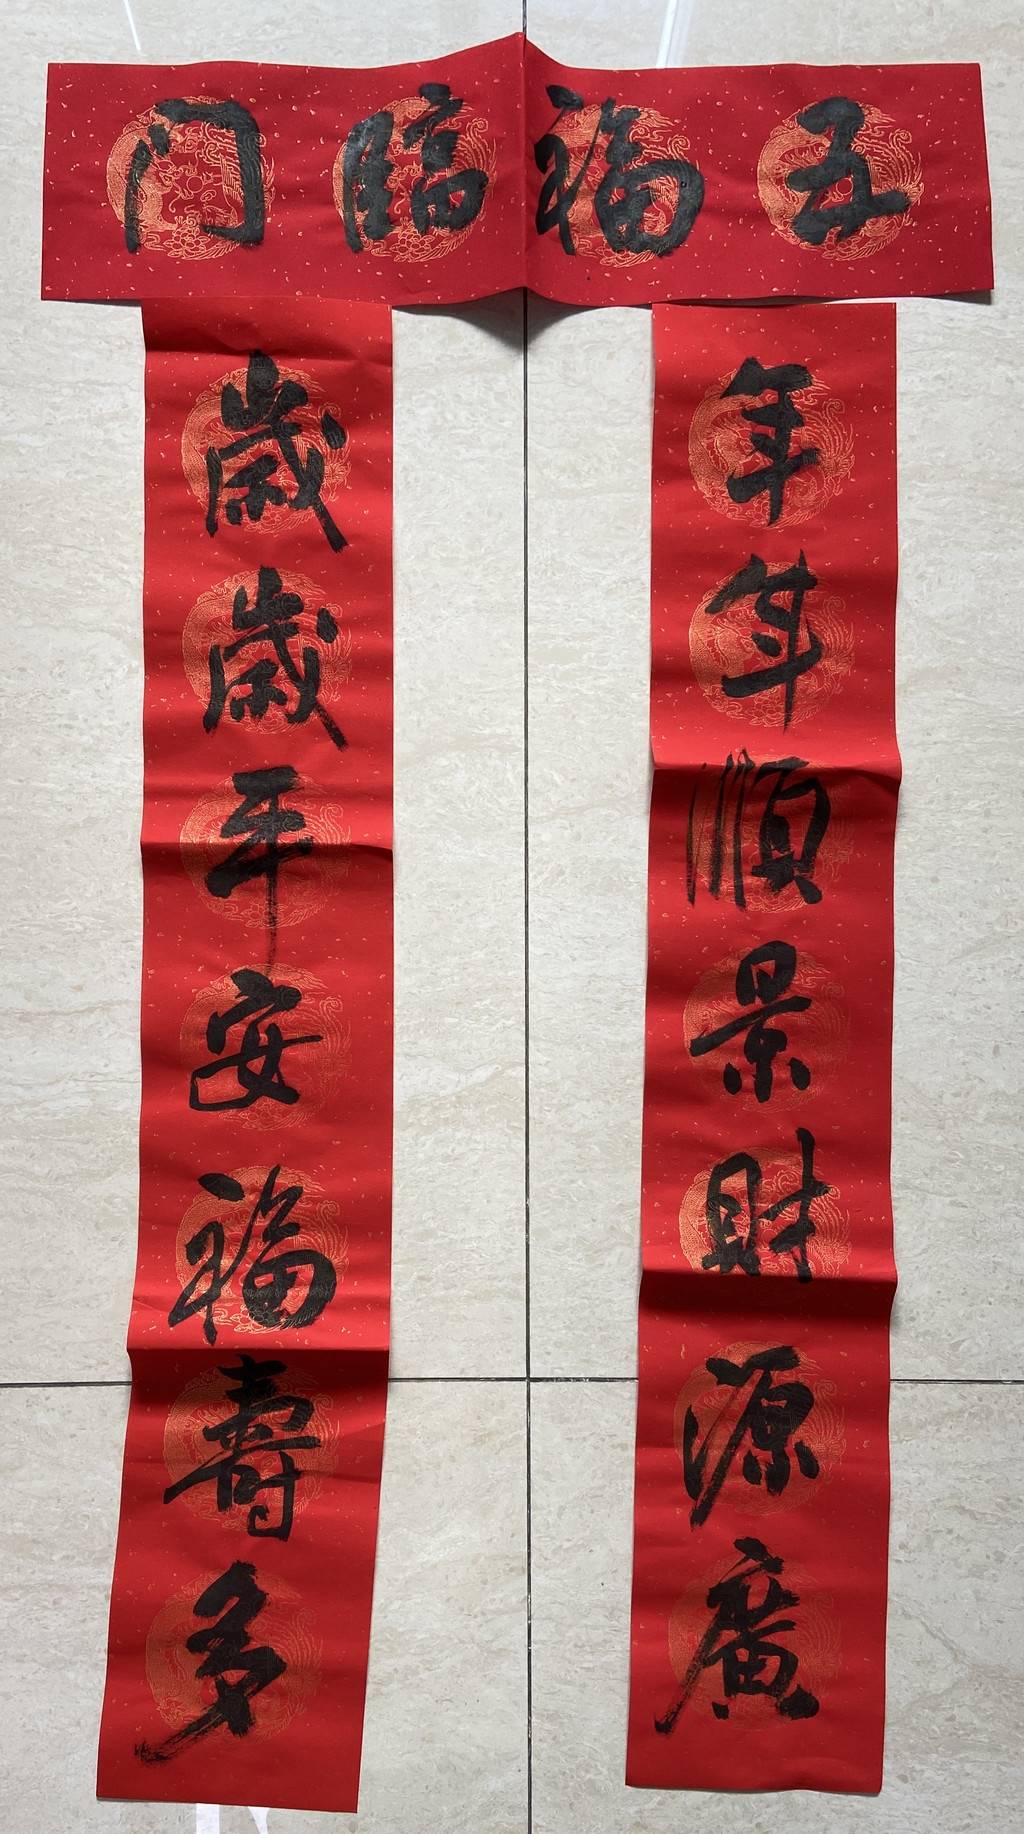 五福臨门
年年順景財源廣
歲歲平安福壽多